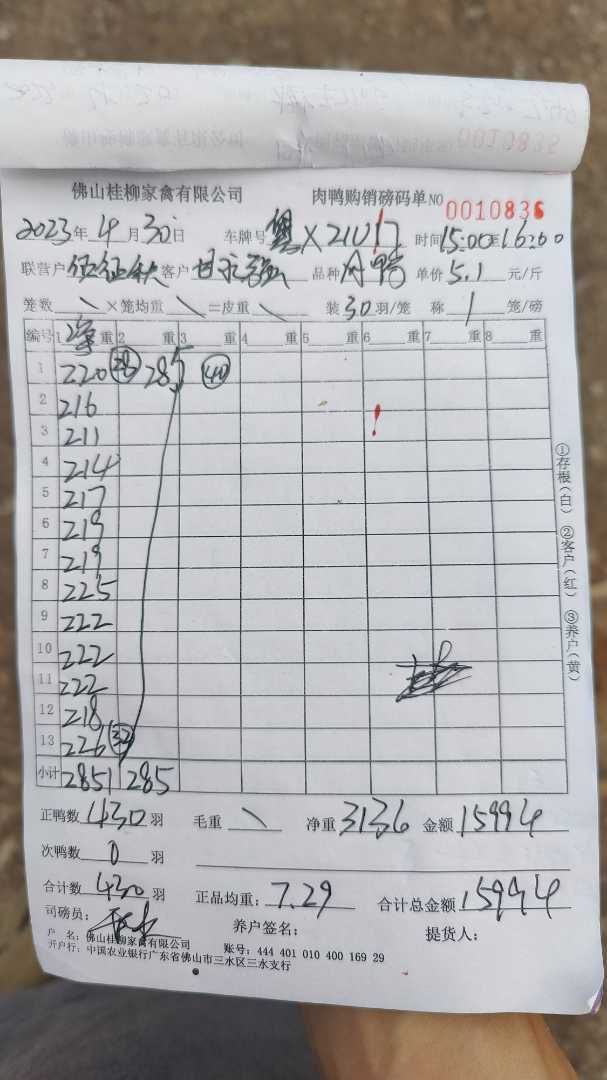 佛山桂柳家禽有限公司 肉鸭购销磅码单 NO 0010836
2023年4月30日 车牌号 粤X21017 时间15:00至16:00
联营户 客户 品种 肉鸭 单价 5.1 元/斤
笼数 \ ×笼均重 \ =皮重 \ 装30羽/笼 称 1 笼/磅
编号 1 净重 2 重 3 重 4 重 5 重 6 重 7 重 8 重
1 220 38 285 40
2 216
3 211
4 214
5 217
6 219
7 219
8 225
9 222
10 222
11 222
12 218
13 226 32
小计 2851 285
正鸭数 430 羽 毛重 \ 净重 3136 金额 15994
次鸭数 0 羽
合计数 430 羽 正品均重: 7.29 合计总金额 15994
司磅员: 养户签名: 提货人:
户 名: 佛山桂柳家禽有限公司 账号: 444 401 010 400 169 29
开户行: 中国农业银行广东省佛山市三水区三水支行
①存根(白) ②客户(红) ③养户(黄)